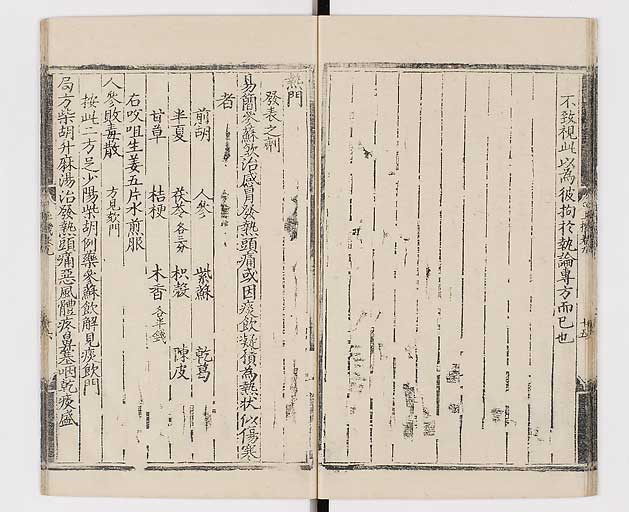 不致視此以為彼拘於執論專方而已也
熱門
發表之劑
易簡參蘇飲治感冒發熱頭痛或因痰飲凝積為熱狀似傷寒
者
前胡 人參 紫蘇 乾葛
半夏 茯苓各三分 枳殼 陳皮
甘草 桔梗 木香各半錢
右㕮咀生姜五片水煎服
人參敗毒散 方見欬門
按此二方足少陽柴胡例藥參蘇飲解見痰飲門
局方柴胡升麻湯治發熱頭痛惡風體疼鼻塞咽乾痰盛